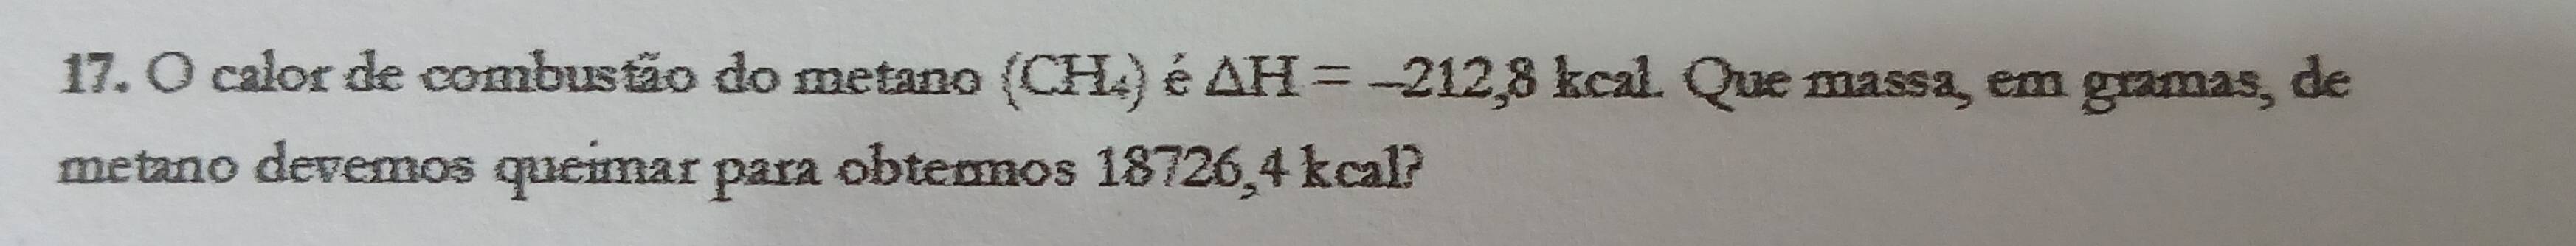 17. O calor de combustão do metano (CH₄) é ΔH = –212,8 kcal. Que massa, em gramas, de
metano devemos queimar para obtermos 18726,4 kcal?